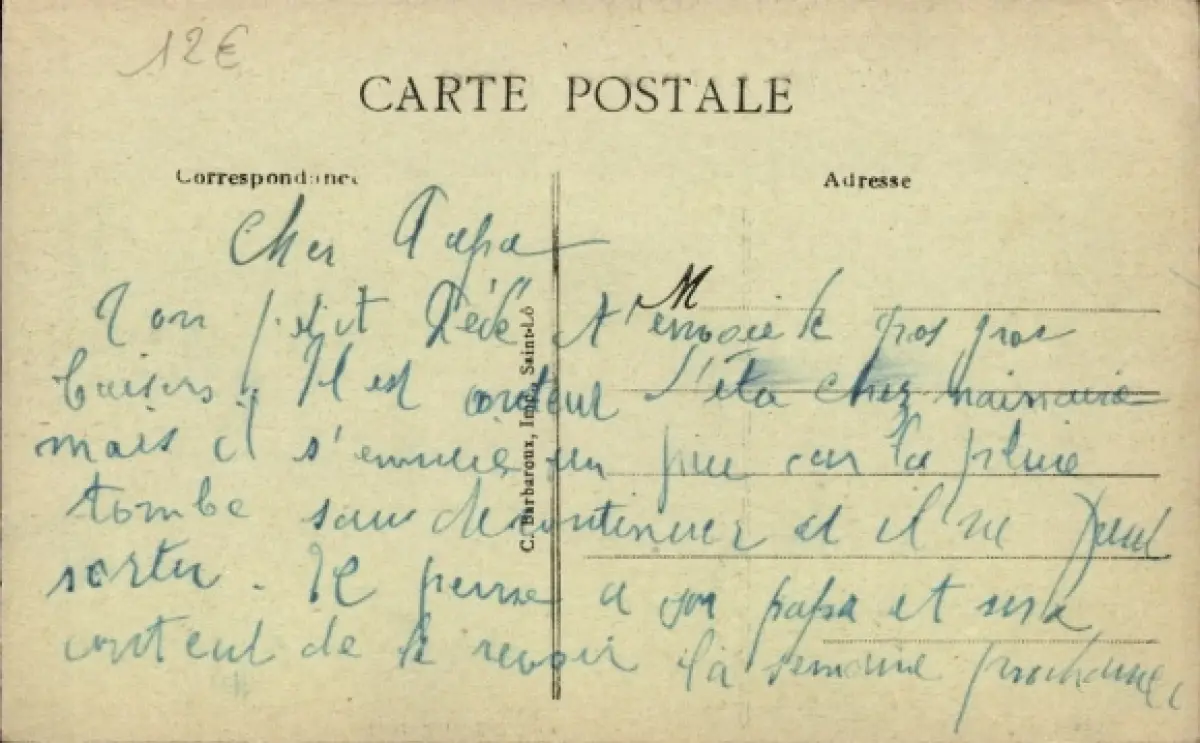 12€
CARTE POSTALE
Correspondance
Adresse
Cher Papa
Ton petit Dédé t'envoie de gros gros
baisers. Il est content d'être chez
mais il s'ennuie un peu car la pluie
tombe sans discontinuer et il ne peut
sortir. Il pense a son papa et sera
content de le revoir la semaine prochaine
M
C. Barbaroux, Imp. Saint-Lô